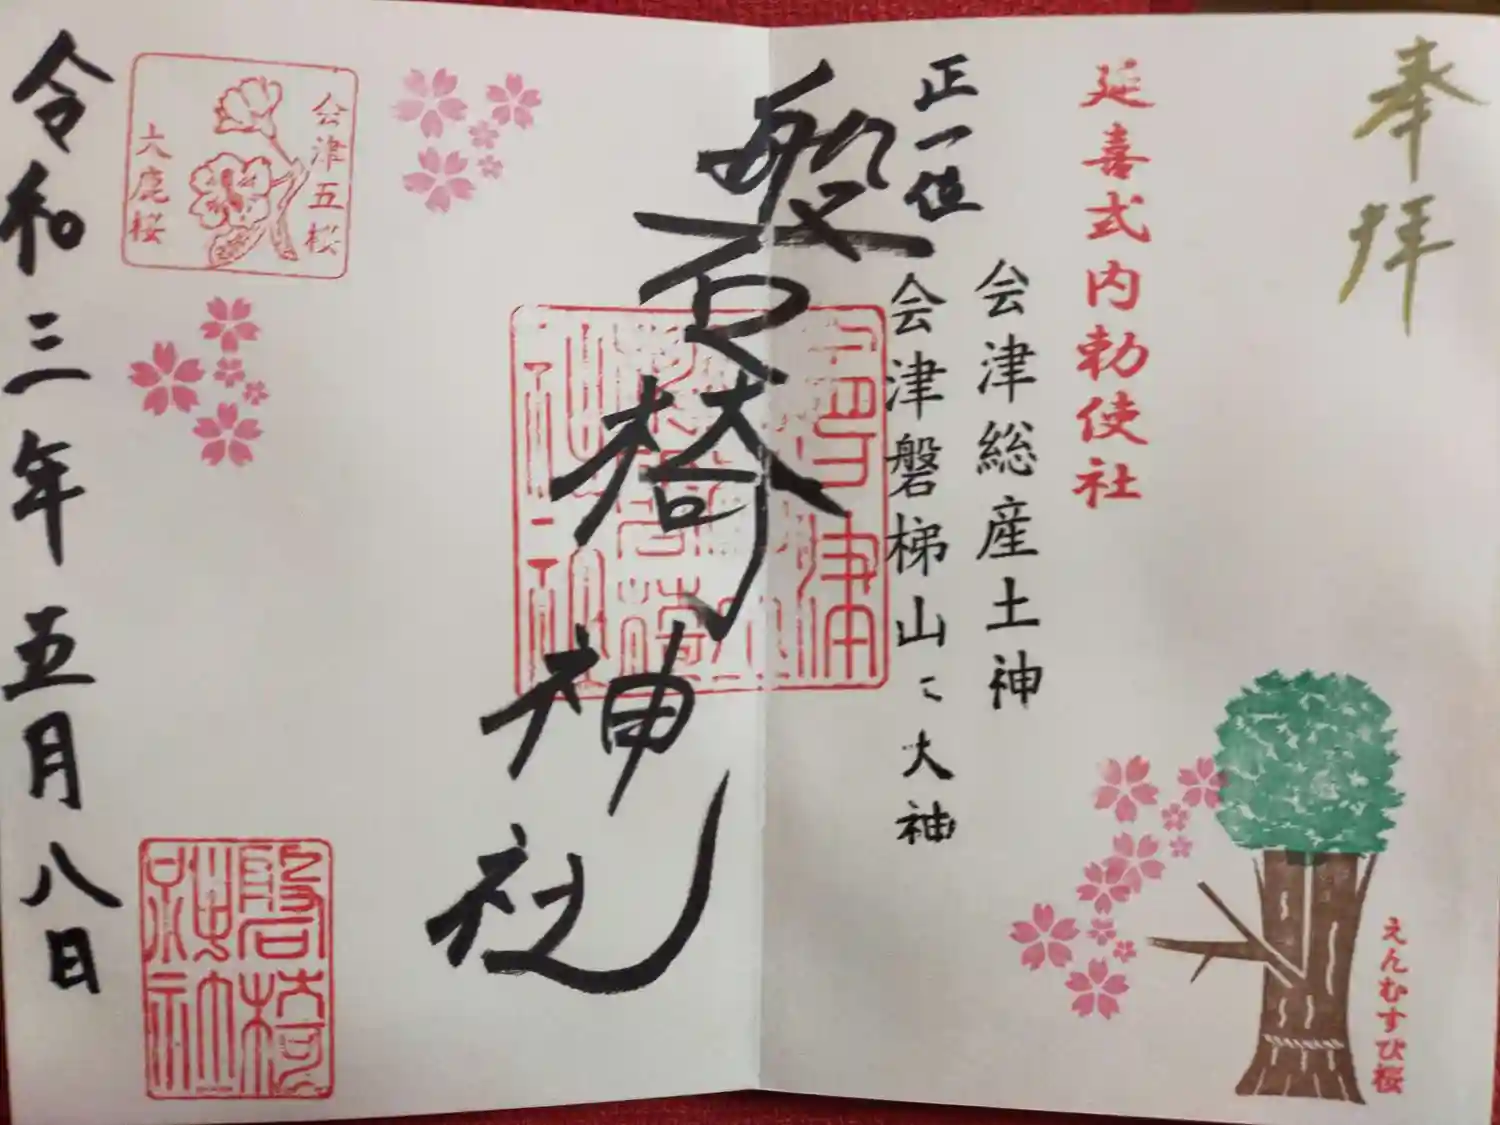 奉拝
延喜式内勅使社
会津総産土神
正一位
会津磐梯山こ大神
磐椅神社
会津五桜
大鹿桜
令和三年五月八日
えんむすび桜